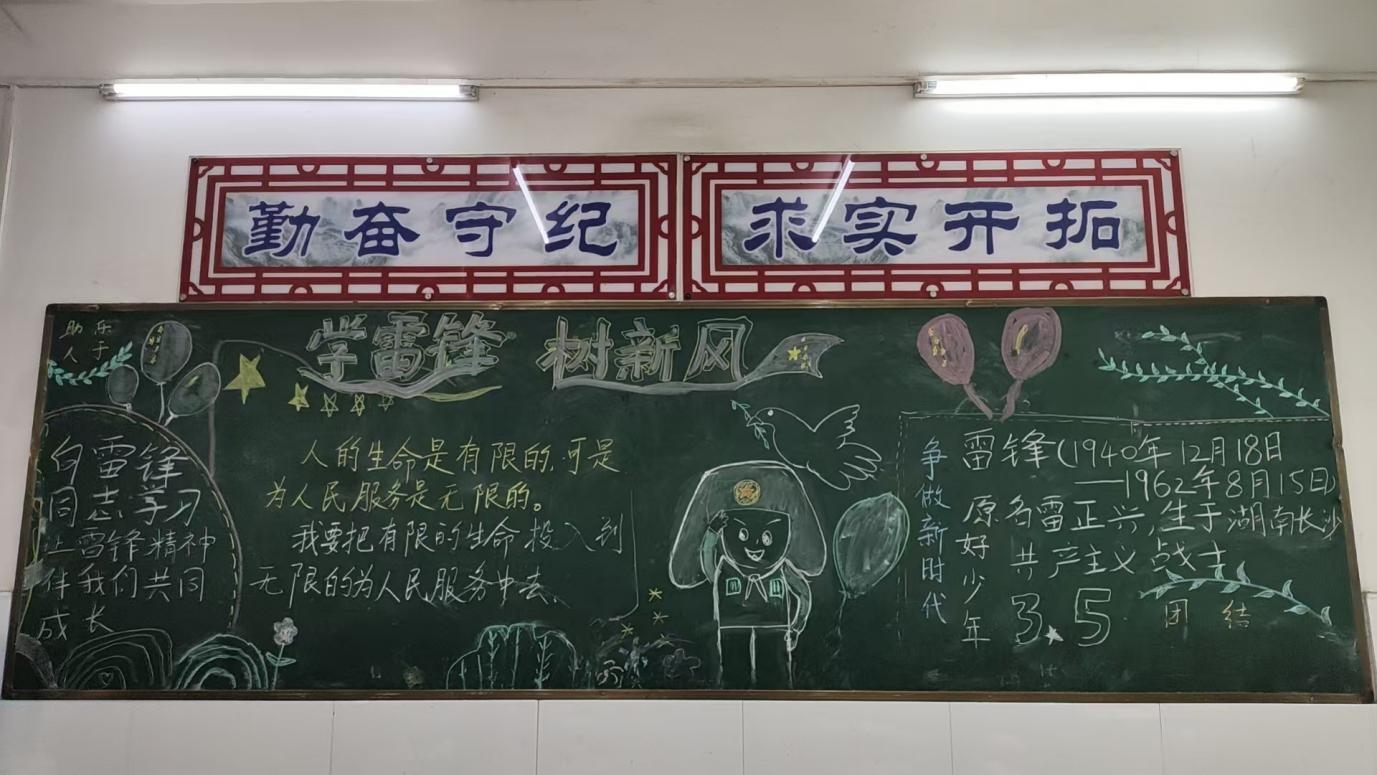 勤奋守纪
求实开拓
助人
乐于
学雷锋 树新风
向雷锋
同志学习
让雷锋精神
伴我们共同
成长
人的生命是有限的,可是
为人民服务是无限的。
我要把有限的生命投入到
无限的为人民服务中去.
争做新时代
好少年
雷锋(1940年12月18日
—1962年8月15日)
原名雷正兴,生于湖南长沙
共产主义战士
3.5
团结